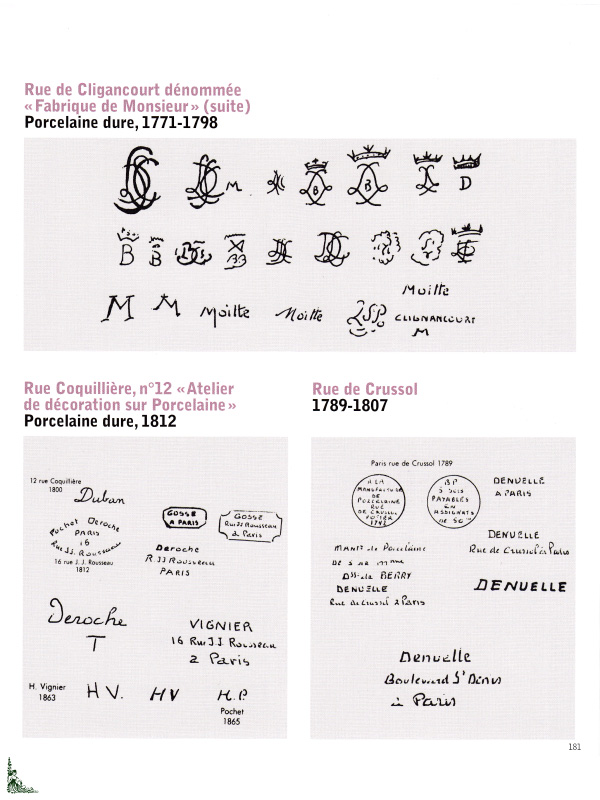 Rue de Cligancourt dénommée
«Fabrique de Monsieur» (suite)
Porcelaine dure, 1771-1798
M
B
B
D
B
B
M
M
Moitte
Moitte
Moitte
CLIGNANCOURT
M
Rue Coquillière, n°12 «Atelier
de décoration sur Porcelaine»
Porcelaine dure, 1812
12 rue Coquillière
1800
Duban
Pochet Deroche
PARIS
16
Rue J.J. Rousseau
16 rue J. J. Rousseau
1812
GOSSE
A PARIS
GOSSE
Rue JJ Rousseau
à Paris
Deroche
R.JJ Rousseau
PARIS
Deroche
T
VIGNIER
16 Rue JJ Rousseau
à Paris
H. Vignier
1863
H V.
H V
H.P
Pochet
1865
Rue de Crussol
1789-1807
Paris rue de Crussol 1789
A LA
MANUFACTURE
DE
PORCELAINE
RUE
DE CRUSSOL
POTTER
BP
5 SOLS
PAYABLES
EN
ASSIGNATS
DE 50
DENUELLE
A PARIS
DENUELLE
Rue de Crussol à Paris
MANre de Porcelaine
DE S AR Mme
Dsse de BERRY
DENUELLE
Rue de Crussol à Paris
DENUELLE
Denuelle
Boulevard St Denis
à Paris
181